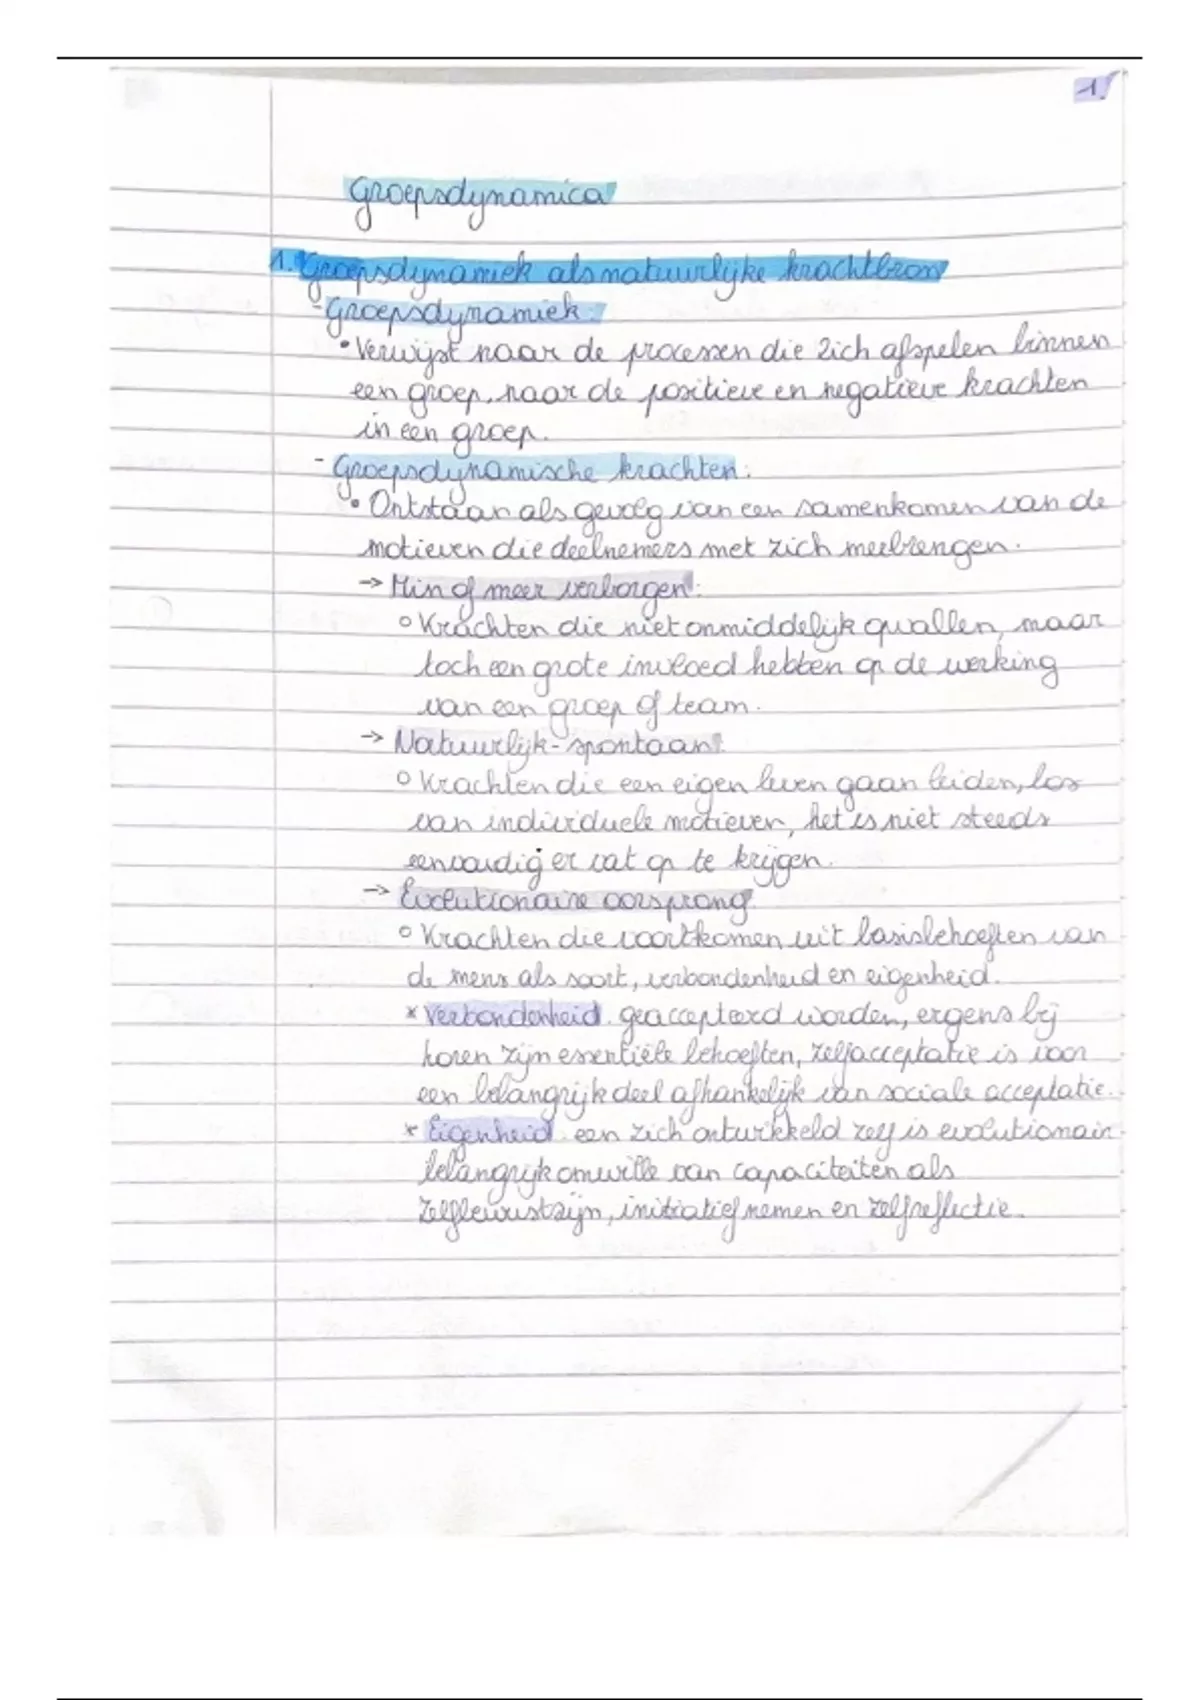 1.
Groepsdynamica
1. Groepsdynamiek als natuurlijke krachtbron
- Groepsdynamiek:
• Verwijst naar de processen die zich afspelen binnen
een groep, naar de positieve en negatieve krachten
in een groep.
- Groepsdynamische krachten:
• Ontstaan als gevolg van een samenkomen van de
motieven die deelnemers met zich meebrengen.
→ Min of meer verborgen:
○ Krachten die niet onmiddelijk opvallen, maar
toch een grote invloed hebben op de werking
van een groep of team.
→ Natuurlijk-spontaan:
○ Krachten die een eigen leven gaan leiden, los
van individuele motieven, het is niet steeds
eenvoudig er vat op te krijgen.
→ Evolutionaire oorsprong:
○ Krachten die voortkomen uit basisbehoeften van
de mens als soort, verbondenheid en eigenheid.
* Verbondenheid: geaccepteerd worden, ergens bij
horen zijn essentiële behoeften, zelfacceptatie is voor
een belangrijk deel afhankelijk van sociale acceptatie.
* Eigenheid: een zich ontwikkeld zelf is evolutionair
belangrijk omwille van capaciteiten als
zelfbewustzijn, initiatief nemen en zelfreflectie.